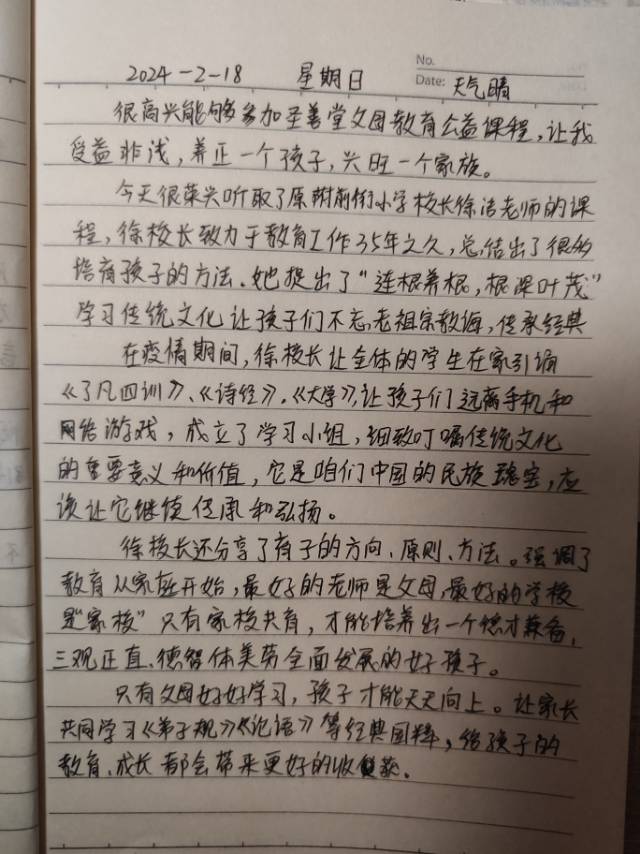 No.
2024-2-18 星期日 Date: 天气晴
很高兴能够参加至善堂父母教育公益课程,让我
受益非浅,养正一个孩子,兴旺一个家族。
今天很荣兴听取了原附前街小学校长徐洁老师的课
程,徐校长致力于教育工作35年之久,总结出了很多
培育孩子的方法.她提出了“连根养根,根深叶茂”
学习传统文化让孩子们不忘老祖宗教诲,传承经典
在疫情期间,徐校长让全体的学生在家引诵
《了凡四训》、《诗经》.《大学》,让孩子们远离手机和
网络游戏,成立了学习小组,细致叮嘱传统文化
的重要意义和价值,它是咱们中国的民族瑰宝,应
该让它继续传承和弘扬。
徐校长还分享了育子的方向、原则、方法。强调了
教育从家庭开始,最好的老师是父母,最好的学校
是“家校”只有家校共育,才能培养出一个德才兼备,
三观正直、德智体美劳全面发展的好孩子。
只有父母好好学习,孩子才能天天向上。让家长
共同学习《弟子规》《论语》等经典国粹,给孩子的
教育、成长都会带来更好的收获。